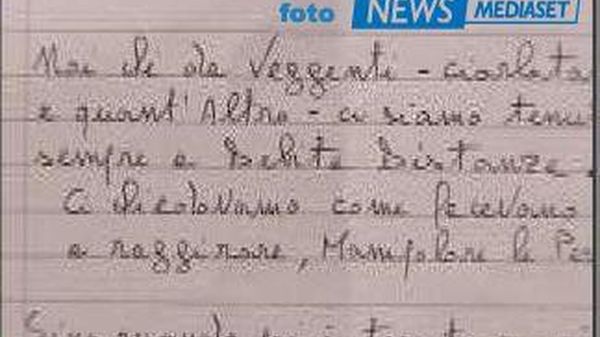 foto NEWS MEDIASET
Noi che da Veggenti - ciarlata
e quant' Altro - ci siamo tenu
sempre a Debite Distanze -
Ci chiedevamo come facevano
a raggirare, Manipolare le Per